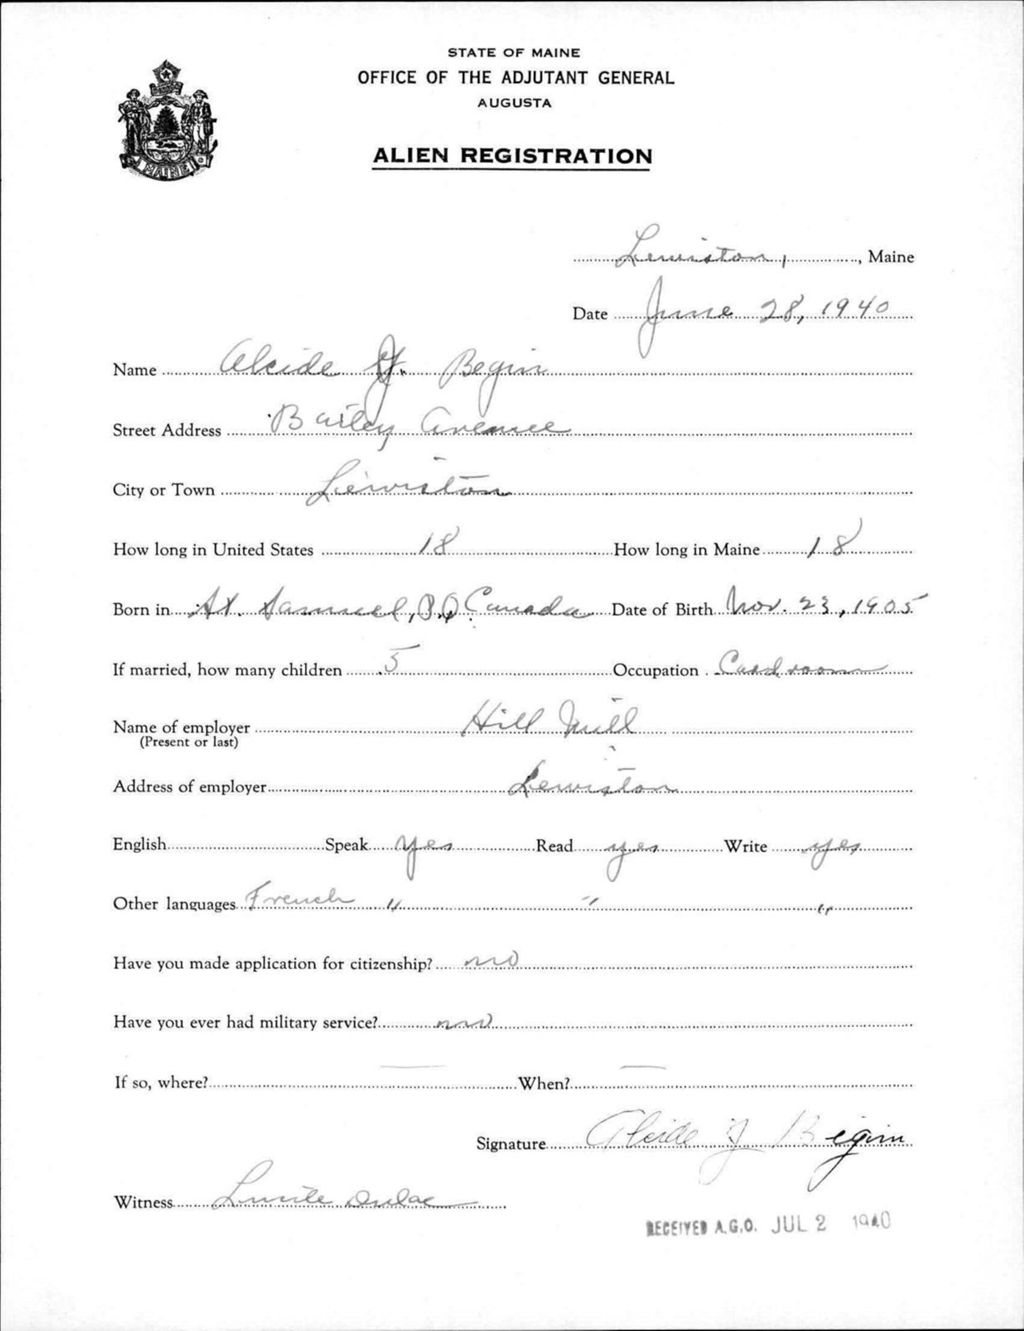 STATE OF MAINE
OFFICE OF THE ADJUTANT GENERAL
AUGUSTA
MAINE
ALIEN REGISTRATION
Lewiston, , Maine
Date June 28, 1940
Name Alcide J. Begin
Street Address Bailey Avenue
City or Town Lewiston
How long in United States 18 How long in Maine 18
Born in St. Samuel, P.Q. Canada Date of Birth Nov. 23, 1905
If married, how many children 5 Occupation Card room
Name of employer Hill Mill
(Present or last)
Address of employer Lewiston
English Speak yes Read yes Write yes
Other languages French " " "
Have you made application for citizenship? no
Have you ever had military service? no
If so, where? — When? —
Signature Alcide J Begin
Witness Lucile Dulac
RECEIVED A.G.O. JUL 2 1940